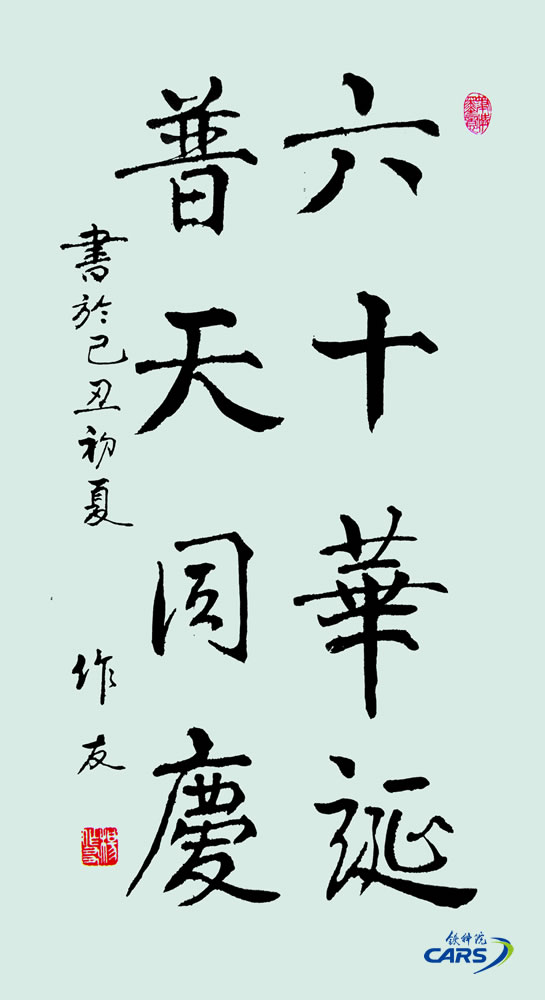 六十華誕
普天同慶
書於己丑初夏
作友
铁科院
CARS